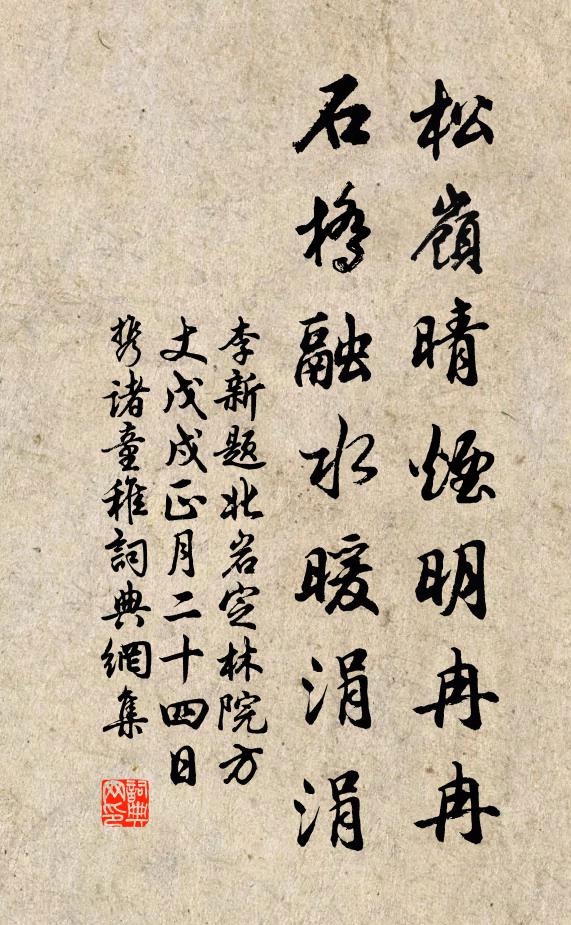 松嶺晴煙明冉冉
石橋融水暖涓涓
李新题北岩定林院方
丈戊戌正月二十四日
携诸童稚詞典網集
詞典网印